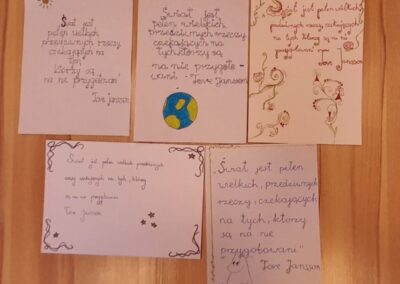 Świat jest
pełen wielkich
przedziwnych rzeczy
czekających na
tych
którzy są
na nie przygotowani"
Tove Jansson
Świat jest
pełen wielkich
przedziwnych rzeczy
czekających na
tych którzy są
na nie przygoto -
wani - Tove Jansson
Świat jest pełen wielkich,
przedziwnych rzeczy, czekających
na tych którzy są na nie
przygotowani
Tove Jansson
Świat jest pełen wielkich przedziwnych
rzeczy czekających na tych, którzy
są na nie przygotowani
Tove Jansson
„Świat jest pełen
wielkich, przedziwnych
rzeczy, czekających
na tych, którzy
są na nie
przygotowani."
Tove Jansson